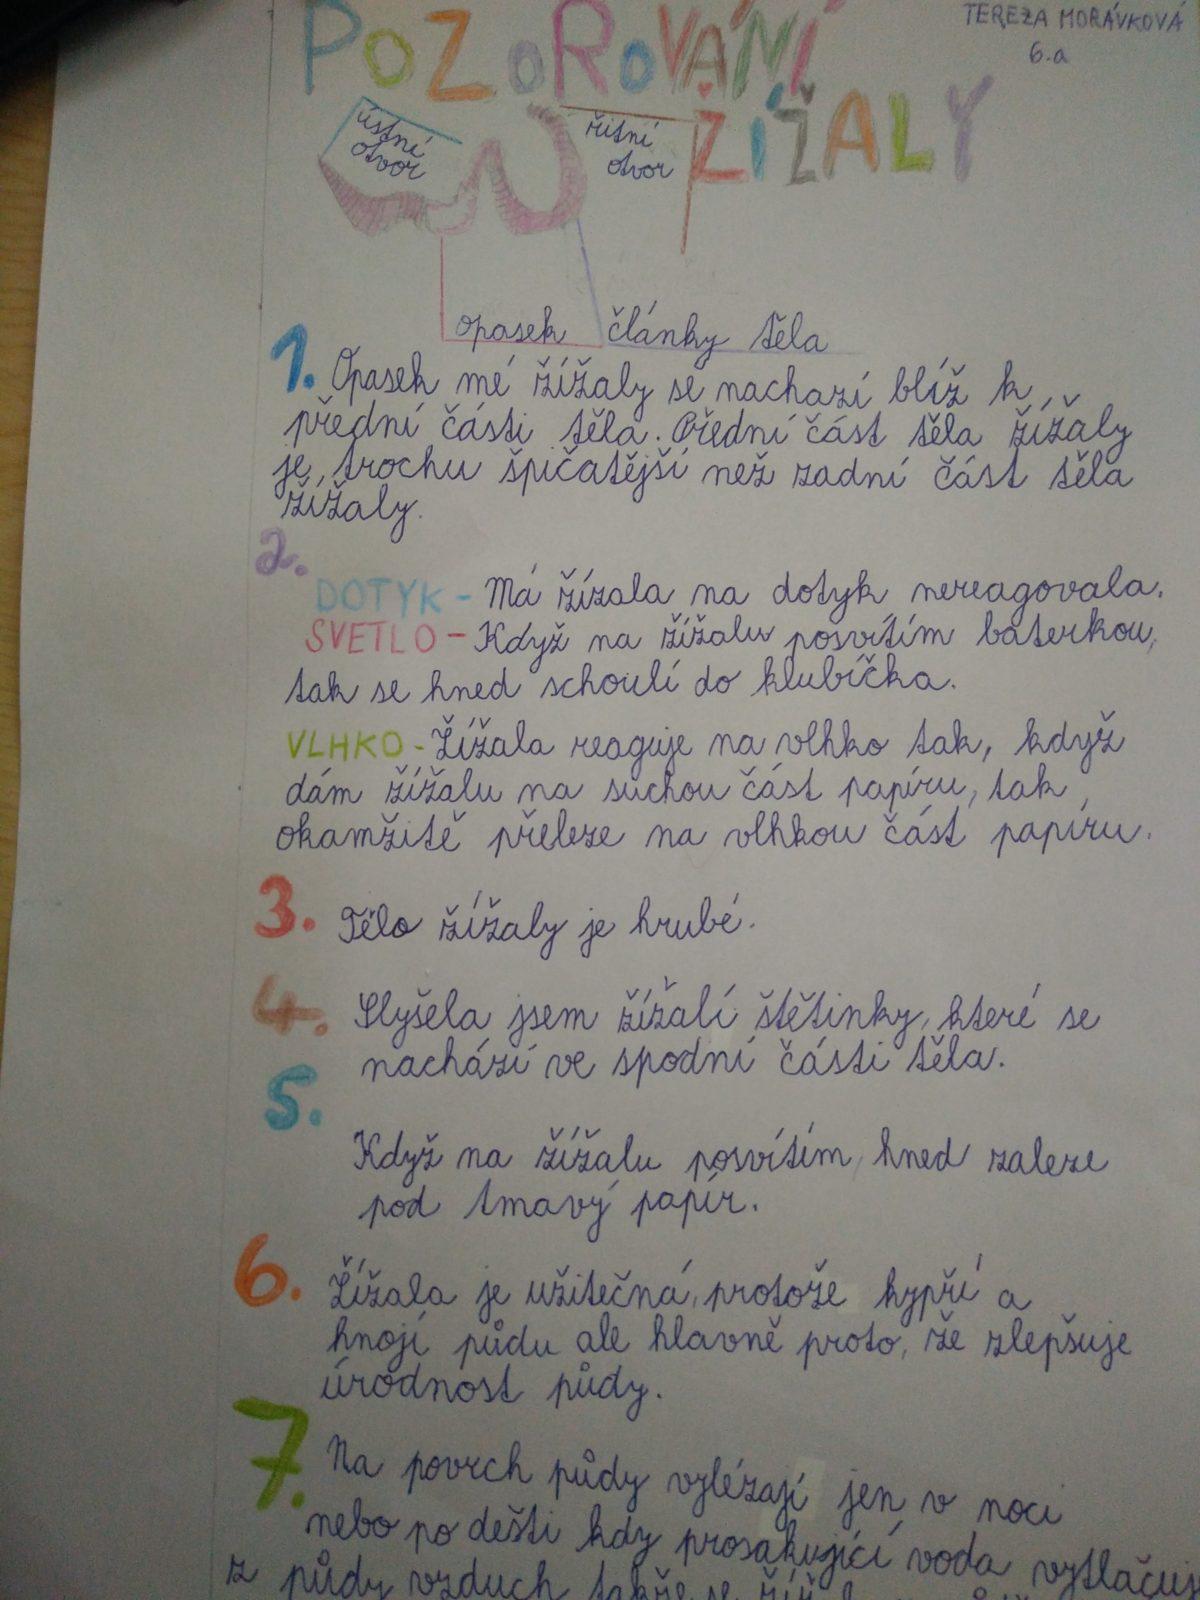 TEREZA MORÁVKOVÁ
6.a
POZOROVÁNÍ
ŽÍŽALY
ústní
otvor
řitní
otvor
opasek články těla
1. Opasek mé žížaly se nachazí blíž k
přední části těla. Přední část těla žížaly
je trochu špičatější než zadní část těla
žížaly.
2.
DOTYK - Má žížala na dotyk nereagovala.
SVETLO - Když na žížalu posvítím baterkou,
tak se hned schoulí do klubíčka.
VLHKO - Žížala reaguje na vlhko tak, když
dám žížalu na suchou část papíru, tak
okamžitě přeleze na vlhkou část papíru.
3. Tělo žížaly je hrubé.
4. Slyšela jsem žížalí štětinky, které se
nachází ve spodní části těla.
5.
Když na žížalu posvítím, hned zaleze
pod tmavý papír.
6. Žížala je užitečná, protože kypří a
hnojí půdu ale hlavně proto, že zlepšuje
úrodnost půdy.
7. Na povrch půdy vylézají jen v noci
nebo po dešti kdy prosakující voda vytlačuj
z půdy vzduch takže se